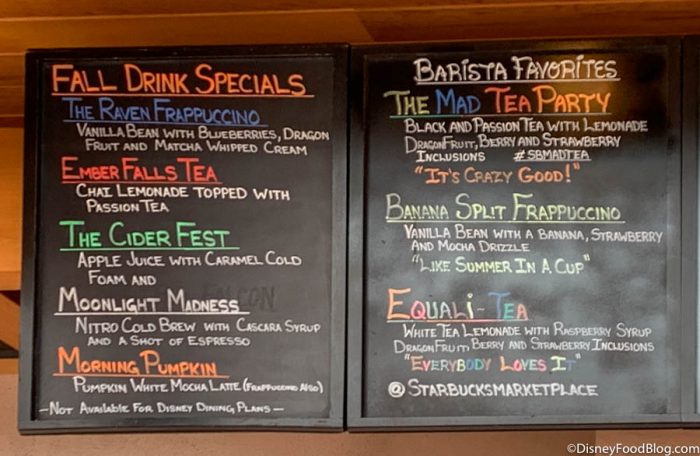 Fall Drink Specials
The Raven Frappuccino
Vanilla Bean with Blueberries, Dragon
Fruit and Matcha Whipped Cream
Ember Falls Tea
Chai Lemonade topped with
Passion Tea
The Cider Fest
Apple Juice with Caramel Cold
Foam and
Moonlight Madness
Nitro Cold Brew with Cascara Syrup
and a Shot of Espresso
Morning Pumpkin
Pumpkin White Mocha Latte (Frappuccino Also)
-Not Available For Disney Dining Plans-
Barista Favorites
The Mad Tea Party
Black and Passion Tea with Lemonade
Dragonfruit, Berry and Strawberry
Inclusions #SBMadTea
"It's Crazy Good!"
Banana Split Frappuccino
Vanilla Bean with a Banana, Strawberry
and Mocha Drizzle
"Like Summer In A Cup"
Equali-Tea
White Tea Lemonade with Raspberry Syrup
Dragonfruit, Berry and Strawberry Inclusions
"Everybody Loves It"
@StarbucksMarketplace
©DisneyFoodBlog.com